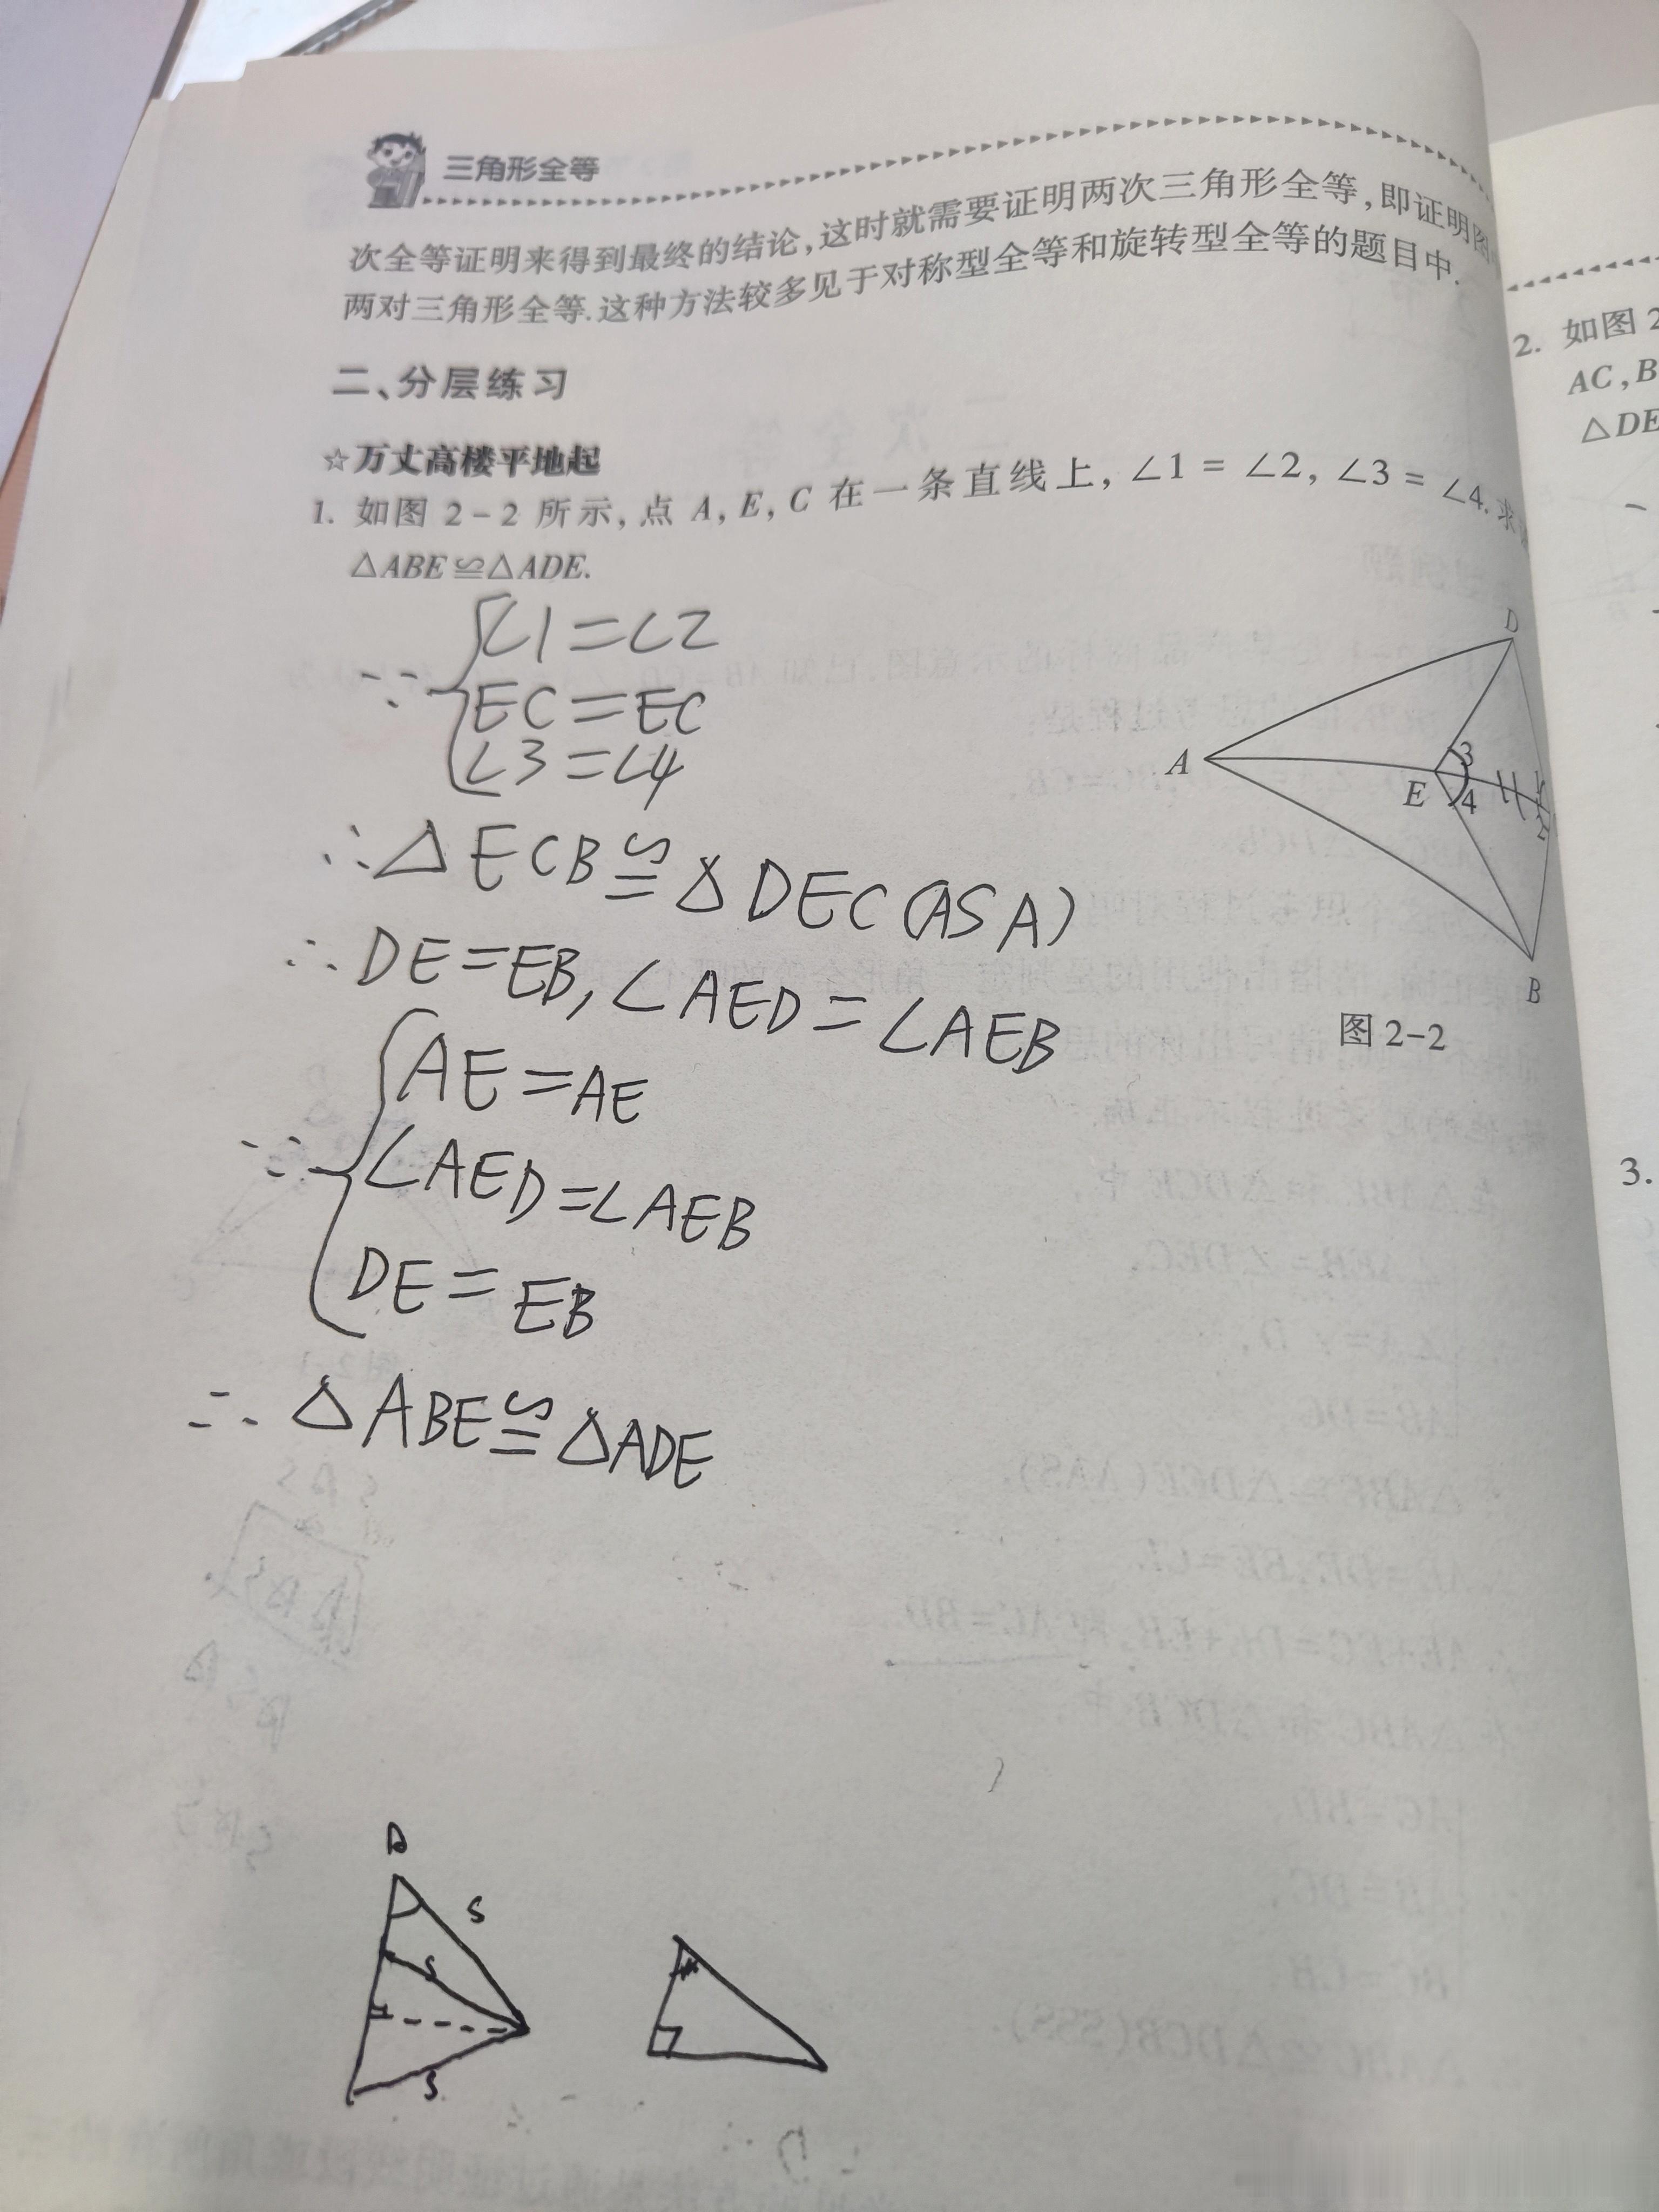 三角形全等
次全等证明来得到最终的结论,这时就需要证明两次三角形全等,即证明图
两对三角形全等.这种方法较多见于对称型全等和旋转型全等的题目中.
二、分层练习
☆万丈高楼平地起
1. 如图 2-2 所示,点 A,E,C 在一条直线上,∠1 = ∠2,∠3 = ∠4. 求
△ABE≌△ADE.
∵ { ∠1=∠2
EC=EC
∠3=∠4
∴△ECB≌△DEC(ASA)
∴DE=EB,∠AED=∠AEB
∵ { AE=AE
∠AED=∠AEB
DE=EB
∴△ABE≌△ADE
D
A
E
3
4
B
图 2-2
A
S
S
S
2. 如图 2
AC,B
△DE
3.